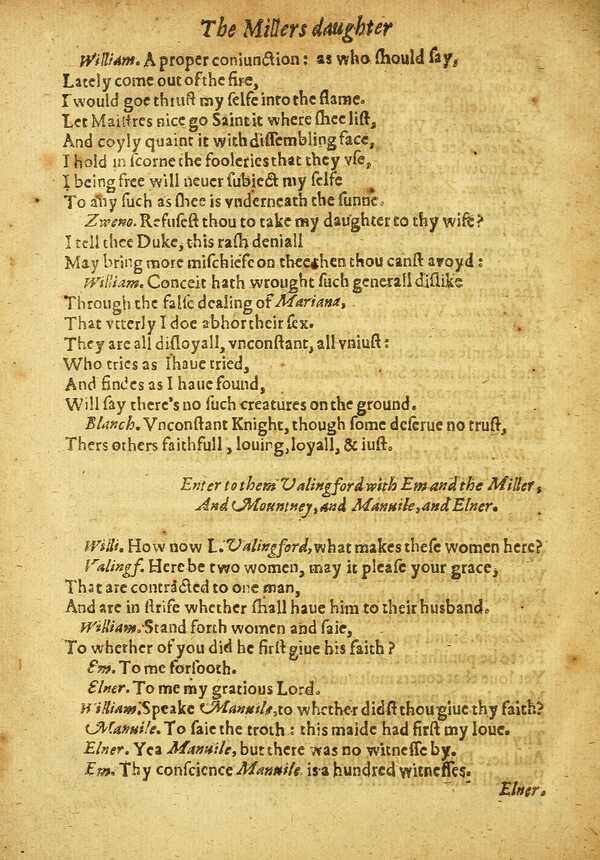 The Millers daughter
William. A proper coniunction: as who ſhould ſay,
Lately come out of the fire,
I would goe thruſt my ſelfe into the flame.
Let Maiſtres nice go Saint it where ſhee liſt,
And coyly quaint it with diſſembling face,
I hold in ſcorne the fooleries that they vſe,
I being free will neuer ſubiect my ſelfe
To any ſuch as ſhee is vnderneath the ſunne.
Zweno. Refuſeſt thou to take my daughter to thy wife?
I tell thee Duke, this raſh deniall
May bring more miſchiefe on thee then thou canſt avoyd:
William. Conceit hath wrought ſuch generall diſlike
Through the falſe dealing of Mariana,
That vtterly I doe abhor their ſex.
They are all diſloyall, vnconſtant, all vniuſt:
Who tries as I haue tried,
And findes as I haue found,
Will ſay there's no ſuch creatures on the ground.
Blanch. Vnconſtant Knight, though ſome deſerue no truſt,
Thers others faithfull, louing, loyall, & iuſt.
Enter to them Valingford with Em and the Miller,
And Mountney, and Manuile, and Elner.
Willi. How now L. Valingford, what makes theſe women here?
Valingf. Here be two women, may it pleaſe your grace,
That are contracted to one man,
And are in ſtrife whether ſhall haue him to their husband.
William. Stand forth women and ſaie,
To whether of you did he firſt giue his faith?
Em. To me forſooth.
Elner. To me my gratious Lord.
William. Speake Manuile, to whether didſt thou giue thy faith?
Manuile. To ſaie the troth: this maide had firſt my loue.
Elner. Yea Manuile, but there was no witneſſe by.
Em. Thy conſcience Manuile is a hundred witneſſes.
Elner.